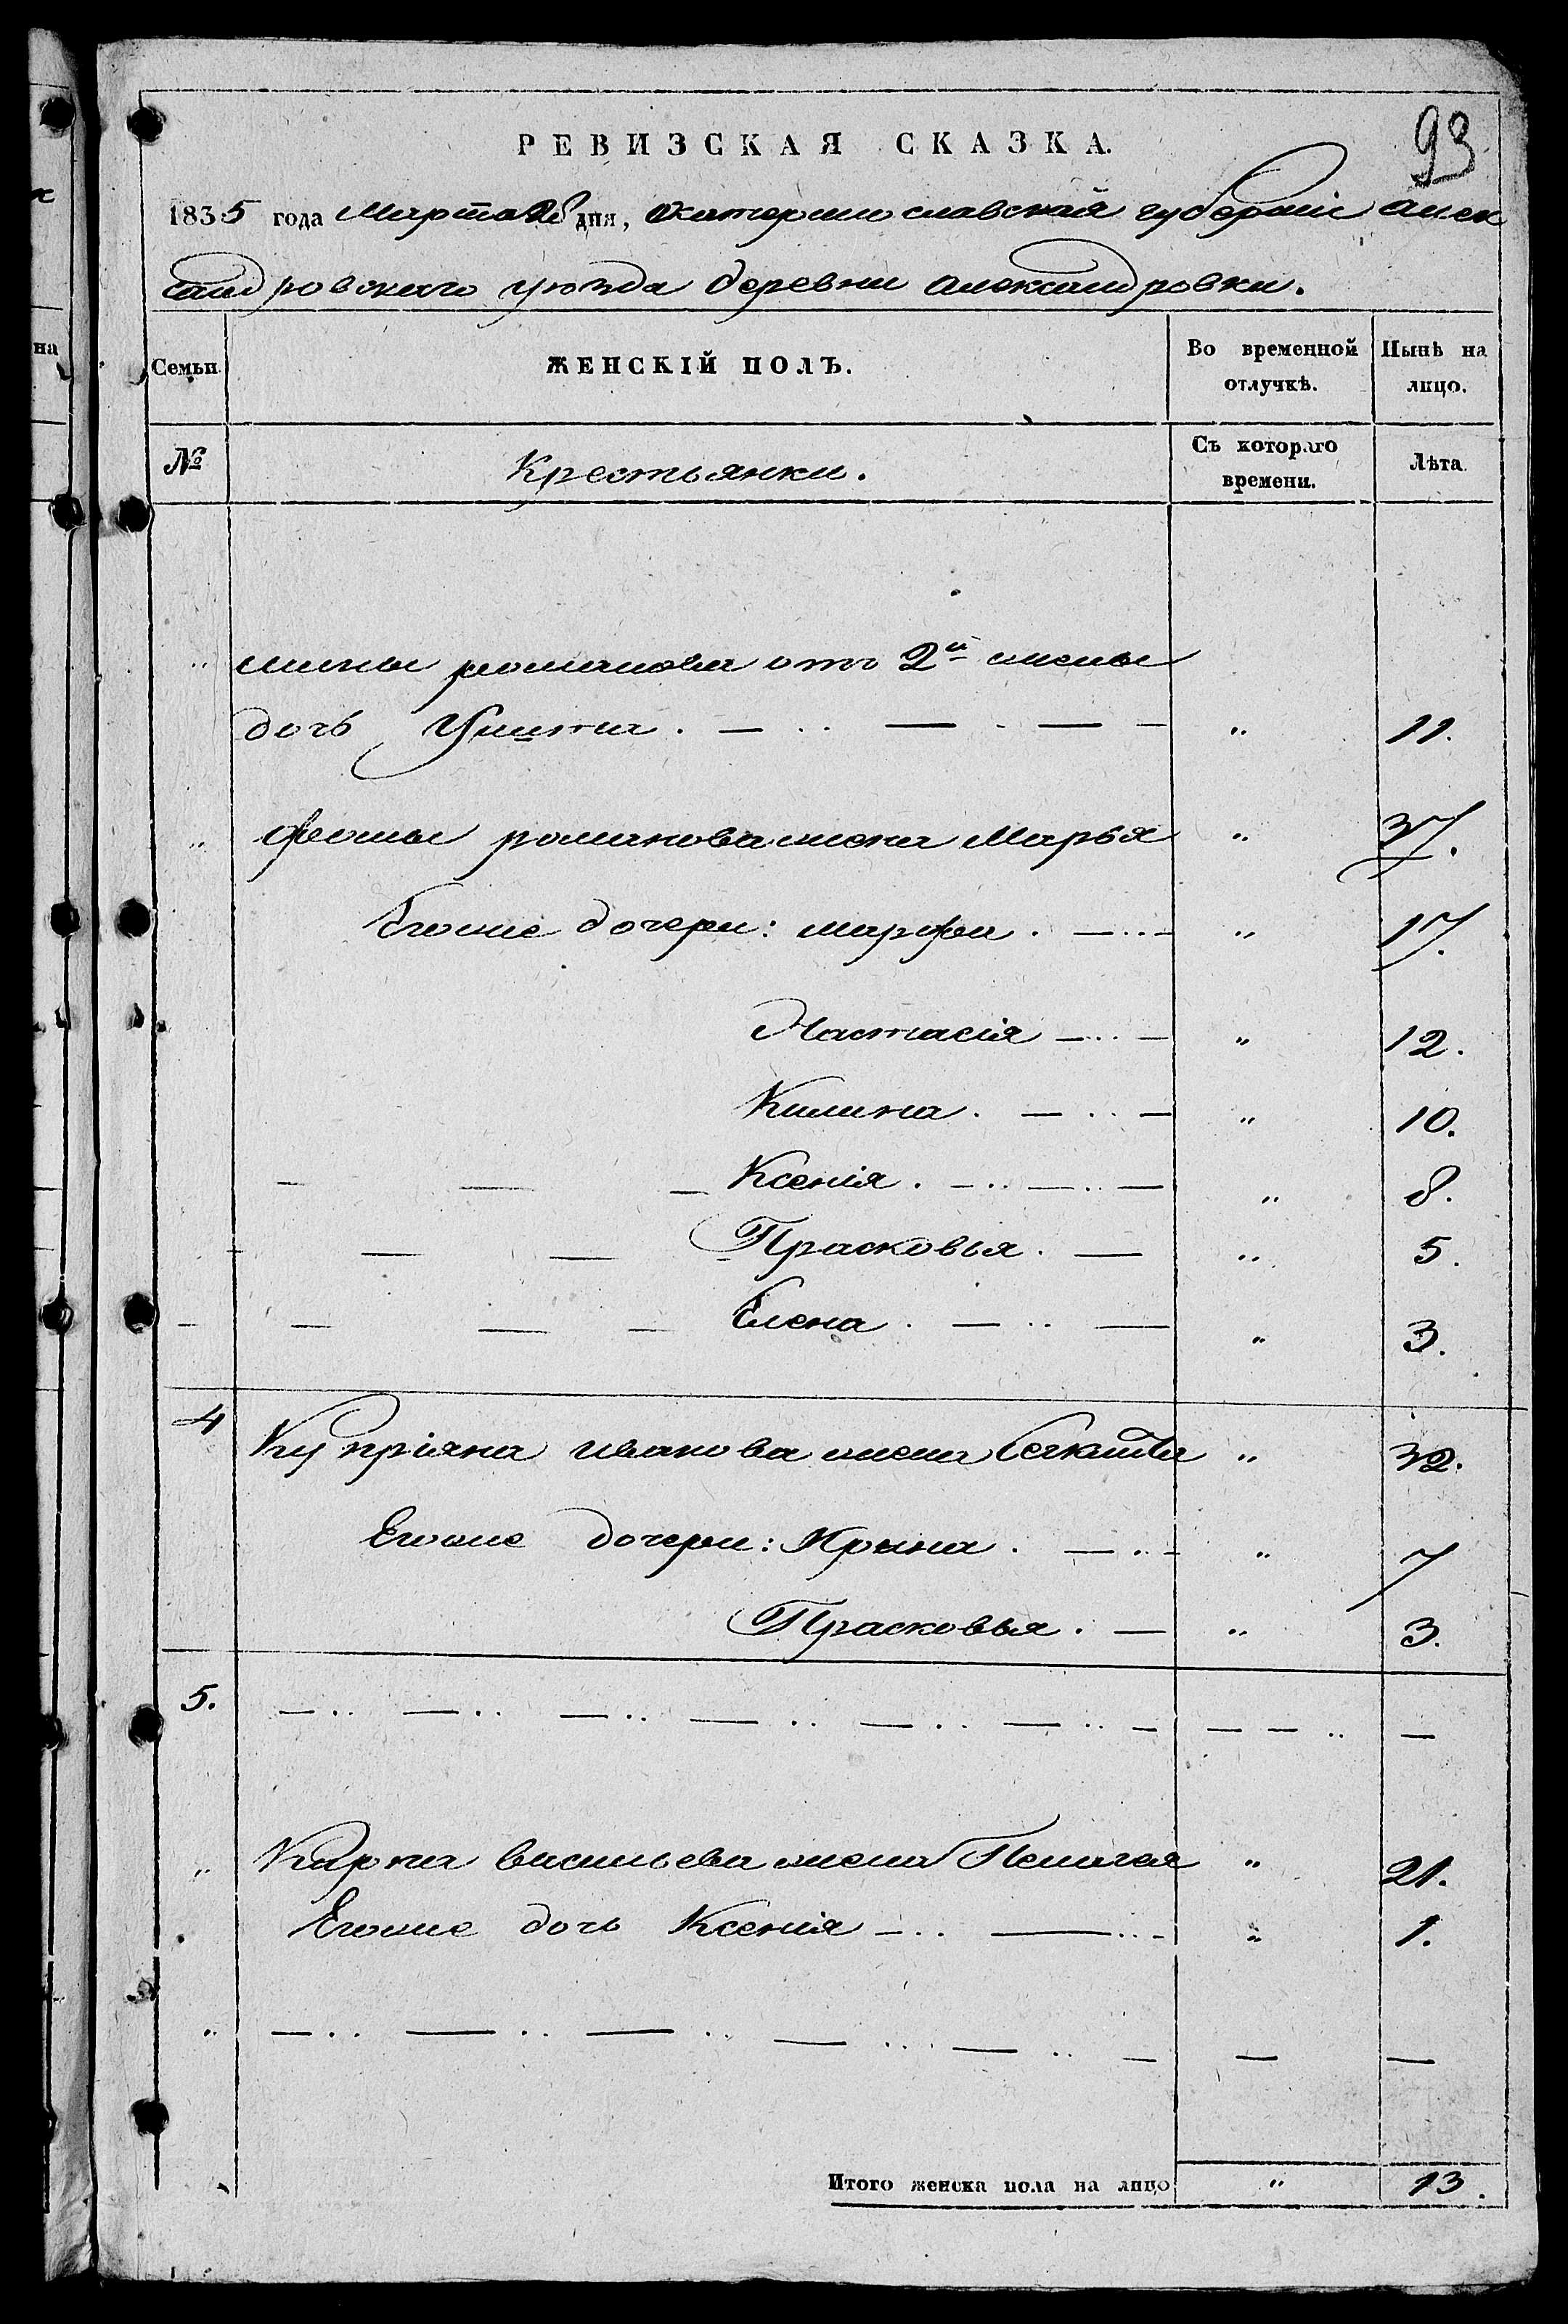 93
РЕВИЗСКАЯ СКАЗКА.
1835 года Марта 28 дня, Екатеринославской губерніи Алек
сандровского уезда деревни Александровки.
Семьи ЖЕНСКІЙ ПОЛЪ. Во временной отлучкѣ. Нынѣ на лицо.
№ Крестьянки. Съ котораго времени. Лѣта.
" романова отъ 2й жены
дочь " 11.
" Фомы романова жена Марья " 37.
Егоже дочери: марфа. " 17.
Настасія " 12.
Килина. " 10.
Ксенія. " 8.
Прасковья. " 5.
Елена. " 3.
4 Купріяна иванова жена " 32.
Егоже дочери: Ирина. " 7
Прасковья. " 3.
5. —
" Карпа васильева жена Пелагея " 21.
Егоже дочь Ксенія " 1.
" —
Итого женска пола на лицо " 13.